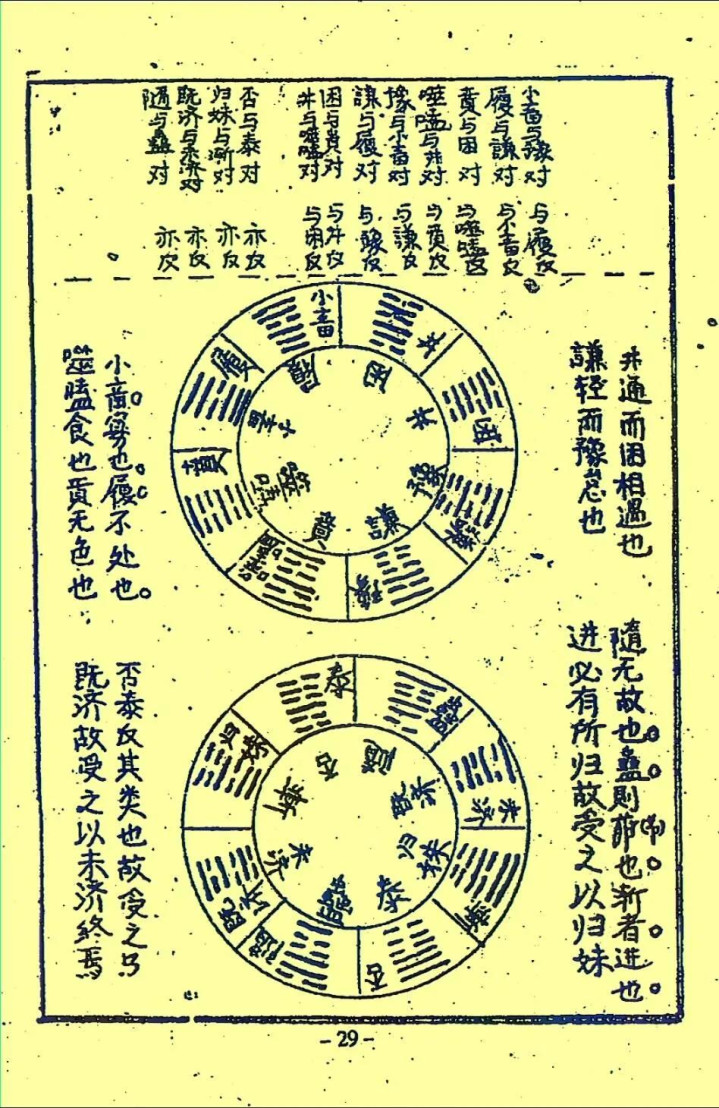 小畜与豫对 与履反
履与謙对 与小畜反
賁与困对 与噬嗑反
噬嗑与井对 与賁反
豫与小畜对 与謙反
謙与履对 与豫反
困与賁对 与井反
井与噬嗑对 与困反
否与泰对 亦反
归妹与渐对 亦反
既济与未济对 亦反
隨与蠱对 亦反
井通而困相遇也
謙轻而豫怠也
小畜
井
困
謙
豫
噬嗑
賁
履
履
困
井
豫
謙
賁
噬嗑
小畜
小畜寡也。履不处也。
噬嗑食也賁无色也
隨无故也。蠱則也。渐者进也。
进必有所归故受之以归妹
泰
蠱
未济
渐
否
隨
既济
归妹
否
隨
既济
归妹
泰
蠱
未济
渐
否泰反其类也故受之以
既济故受之以未济終焉
-29-